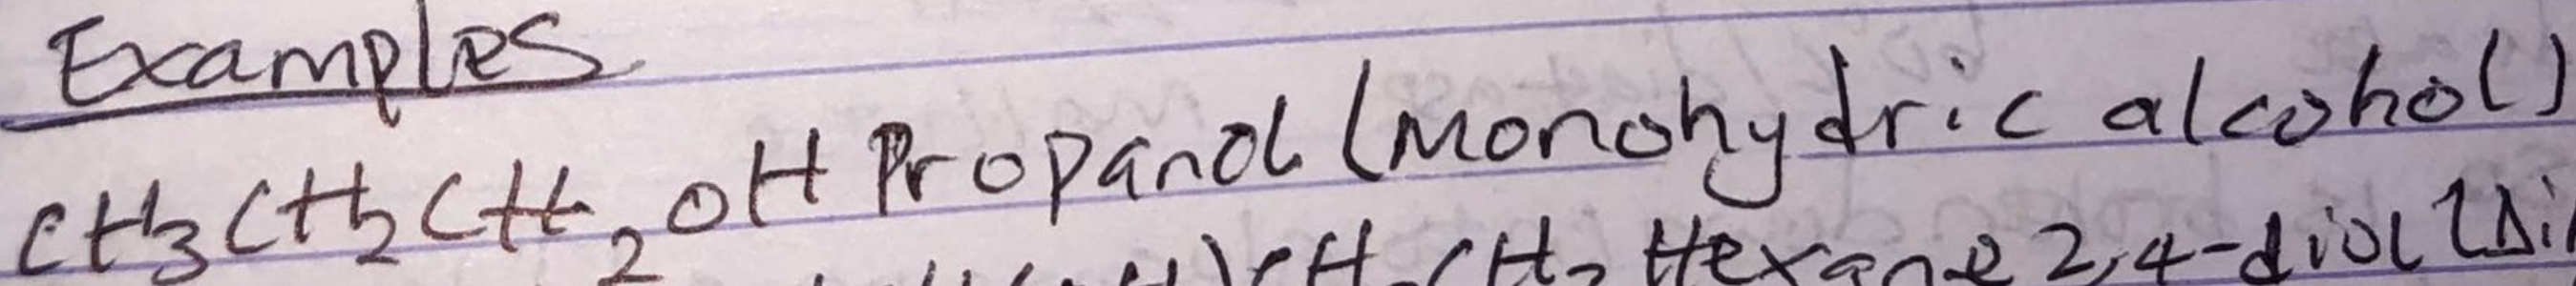 Examples
CH3CH2CH2OH Propanol (Monohydric alcohol)
CH2CH3 Hexane 2,4-diol